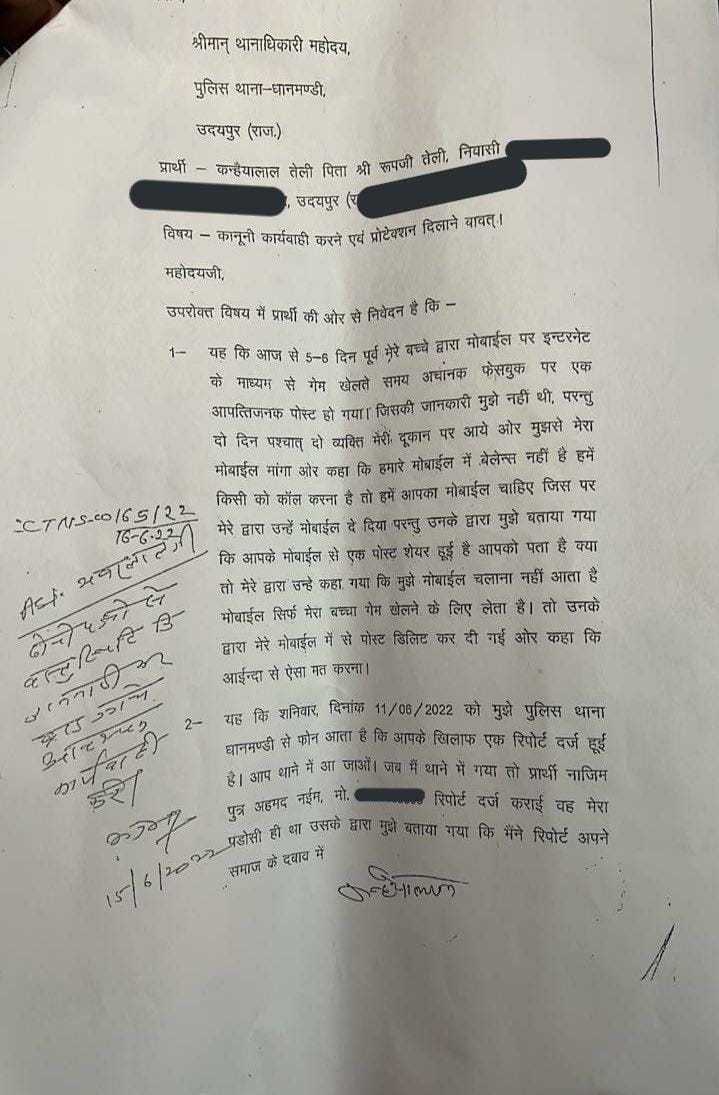 श्रीमान् थानाधिकारी महोदय,
पुलिस थाना–धानमण्डी,
उदयपुर (राज.)
प्रार्थी – कन्हैयालाल तेली पिता श्री रूपजी तेली, निवासी
, उदयपुर (र
विषय – कानूनी कार्यवाही करने एवं प्रोटेक्शन दिलाने वावत्।
महोदयजी,
उपरोक्त विषय में प्रार्थी की ओर से निवेदन है कि –
1– यह कि आज से 5–6 दिन पूर्व मेरे बच्चे द्वारा मोबाईल पर इन्टरनेट
के माध्यम से गेम खेलते समय अचांनक फेसबुक पर एक
आपत्तिजनक पोस्ट हो गया। जिसकी जानकारी मुझे नहीं थी, परन्तु
दो दिन पश्चात् दो व्यक्ति मेरी दूकान पर आये ओर मुझसे मेरा
मोबाईल मांगा ओर कहा कि हमारे मोबाईल में बेलेन्स नहीं है हमें
किसी को कॉल करना है तो हमें आपका मोबाईल चाहिए जिस पर
मेरे द्वारा उन्हें मोबाईल दे दिया परन्तु उनके द्वारा मुझे बताया गया
कि आपके मोबाईल से एक पोस्ट शेयर हूई है आपको पता है क्या
तो मेरे द्वारा उन्हे कहा गया कि मुझे मोबाईल चलाना नहीं आता है
मोबाईल सिर्फ मेरा बच्चा गेम खेलने के लिए लेता है। तो उनके
द्वारा मेरे मोबाईल में से पोस्ट डिलिट कर दी गई ओर कहा कि
आईन्दा से ऐसा मत करना।
2– यह कि शनिवार, दिनांक 11/06/2022 को मुझे पुलिस थाना
धानमण्डी से फोन आता है कि आपके खिलाफ एक रिपोर्ट दर्ज हूई
है। आप थाने में आ जाओं। जब मैं थाने में गया तो प्रार्थी नाजिम
पुत्र अहमद नईम, मो. रिपोर्ट दर्ज कराई वह मेरा
पडोसी ही था उसके द्वारा मुझे बताया गया कि मैंने रिपोर्ट अपने
समाज के दवाव में
16-6-22
कार्यवाही
करें।
15/6/2022